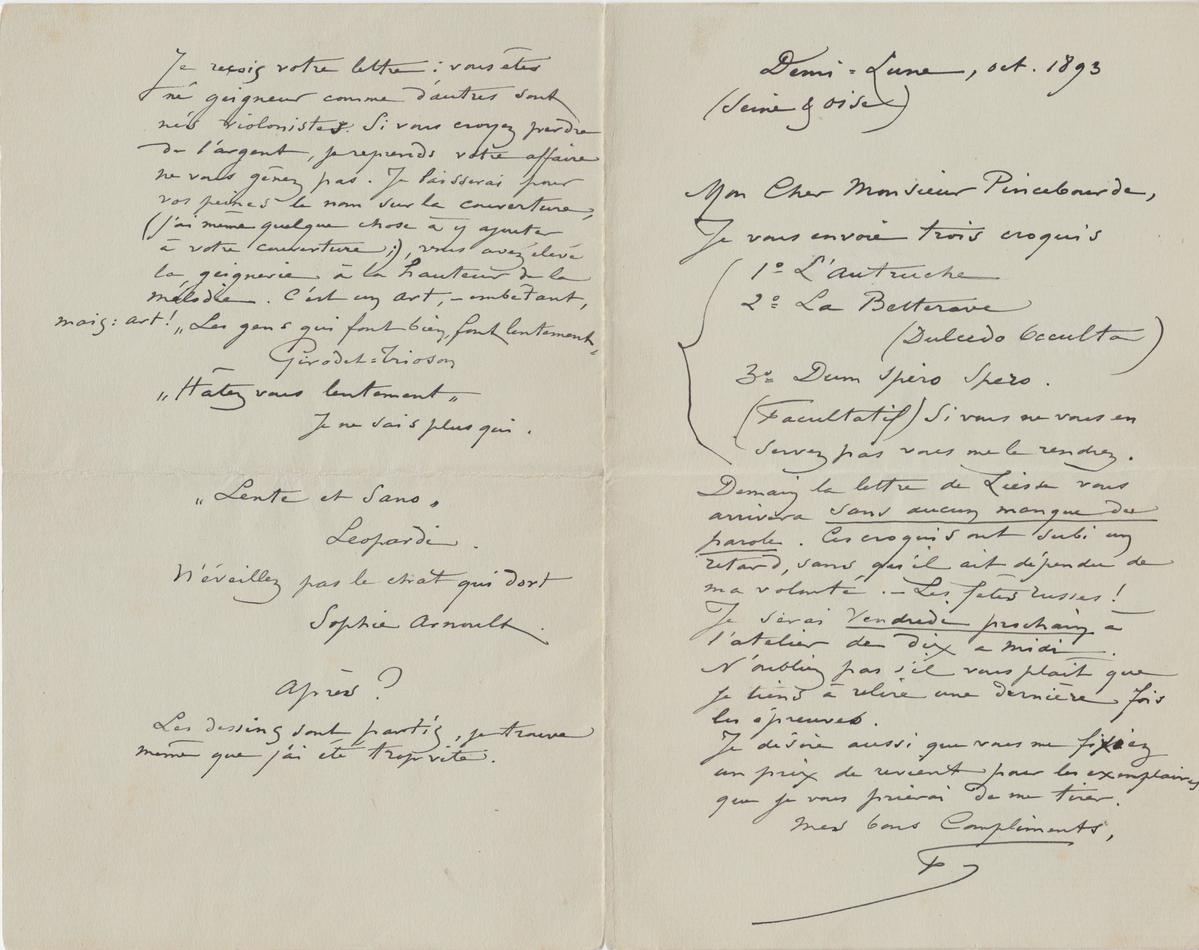 Demi=Lune, oct. 1893
(Seine & Oise)
Mon Cher Monsieur Pincebourde,
Je vous envoie trois croquis
1º L'Autruche
2º La Betterave
(Dulcedo Occulta)
3º Dum Spiro Spero.
(Facultatif) Si vous ne vous en
servez pas vous me le rendrez.
Demain la lettre de Liesse vous
arrivera sans aucun manque de
parole. Ces croquis ont subi un
retard, sans qu'il ait dépendu de
ma volonté. - Les fêtes russes!
Je serai Vendredi prochain à
l'atelier de dix a midi.
N'oubliez pas s'il vous plait que
je tiens à relire une dernière fois
les épreuves.
Je désire aussi que vous me fixiez
un prix de revient pour les exemplaires
que je vous prierai de me tirer.
Mes bons Compliments,
Je reçois votre lettre: vous êtes
né geigneur comme d'autres sont
nés violonistes. Si vous croyez perdre
de l'argent, je reprends votre affaire
ne vous gênez pas. Je laisserai pour
vos peines le nom sur la couverture,
(j'ai même quelque chose à y ajouter
à votre couverture;), vous avez élevé
la geignerie à la hauteur de la
mélodie. C'est un art, - embêtant,
mais: art! „Les gens qui font bien, font lentement„
Girodet=Trioson
„Hâtez vous lentement„
Je ne sais plus qui.
„Lente et Sano„
Leopardi.
N'éveillez pas le chat qui dort
Sophie Arnoult.
Après?
Les dessins sont partis, je trouve
même que j'ai été trop vite.